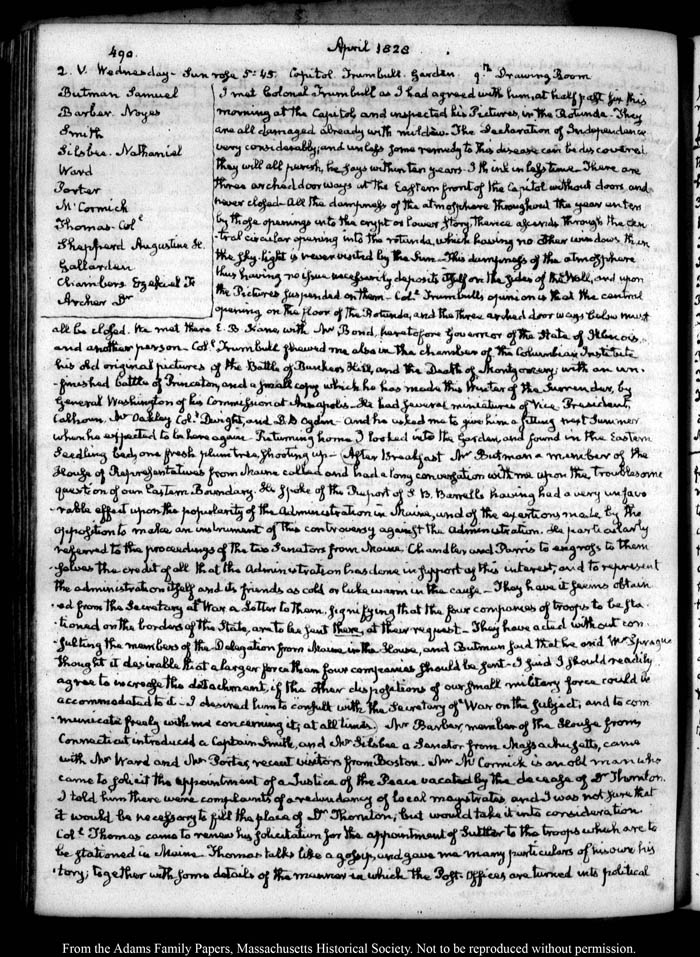 490.
April 1828
2. V. Wednesday - Sun rose 5:45. Capitol. Trumbull. Garden. 9th Drawing Room
Butman Samuel
Barber. Noyes
Smith
Silsbee. Nathaniel
Ward
Porter
McCormick
Thomas. Colt
Shepperd Augustine H.
Gallarden
Chambers Ezekiel F.
Archer Dr
I met Colonel Trumbull as I had agreed with him, at half past six this
morning at the Capitol and inspected his Pictures, in the Rotunda. They
are all damaged already with mildew. The Declaration of Independence
very considerably; and unless some remedy to this disease can be discovered
they will all perish, he says within ten years. I think in less time. There are
three arched door ways at the Eastern front of the Capitol without doors, and
never closed - All the dampness of the atmosphere throughout the year enters
by those openings into the crypt or lower story, thence ascends through the cen
-tral circular opening into the rotunda, which having no other windows than
the sky-light is never visited by the Sun - This dampness of the atmosphere
thus having no issue necessarily deposits itself on the sides of the Wall, and upon
the Pictures suspended on them - Colt Trumbull's opinion is that the central
opening on the floor of the Rotunda, and the three arched door ways below must
all be closed. We met there E. B. Kane, with Mr Bond, heretofore Governor of the State of Illinois,
and another person - Colt Trumbull shewed me also in the chamber of the Columbian Institute
his old original pictures of the Battle of Bunkers Hill, and the Death of Montgomery; with an un-
-finished battle of Princeton, and a small copy which he has made this Winter of the Surrender, by
General Washington of his Commission at Annapolis - He had several miniatures of Vice President
Calhoun, Mr Oakley Colt Dwight, and B. D. Ogden - And he asked me to give him a sitting next Summer
when he expected to be here again - Returning home I looked into the Garden, and found in the Eastern
Seedling bed, one fresh plum tree, shooting up - After Breakfast Mr Butman a member of the
House of Representatives from Maine called and had a long conversation with me upon the troublesome
question of our Eastern Boundary. He spoke of the Report of S. B. Barrell as having had a very unfavo
-rable effect upon the popularity of the Administration in Maine, and of the exertions made by the
opposition to make an instrument of this controversy against the Administration. He particularly
referred to the proceedings of the two Senators from Maine, Chandler and Parris to engross to them
-selves the credit of all that the Administration has done in support of this interest, and to represent
the administration itself and its friends as cold or luke warm in the cause - They have it seems obtain
-ed from the Secretary at War a Letter to them, signifying that the four companies of troops to be sta
-tioned on the borders of the State, are to be sent there, at their request - They have acted without con
-sulting the members of the Delegation from Maine in the House, and Butman said that he and Mr Sprague
thought it desirable that a larger force than four companies should be sent - I said I should readily
agree to increase the detachment, if the other dispositions of our small military force could be
accommodated to it - I desired him to consult with the Secretary of War on the subject, and to com
-municate freely with me concerning it, at all times - Mr Barber, member of the House from
Connecticut introduced a Captain Smith, and Mr Silsbee a Senator from Massachusetts, came
with Mr Ward and Mr Porter, recent visitors from Boston. Mr McCormick is an old man who
came to solicit the appointment of a Justice of the Peace vacated by the decease of Dr Thornton.
I told him there were complaints of a redundancy of local magistrates and I was not sure that
it would be necessary to fill the place of Dr Thornton; but would take it into consideration
Colt Thomas came to renew his solicitation for the appointment of Suttler to the troops which are to
be stationed in Maine - Thomas talks like a gossip, and gave me many particulars of his own his
-tory; together with some details of the manner in which the Post-Offices are turned into political
From the Adams Family Papers, Massachusetts Historical Society. Not to be reproduced without permission.